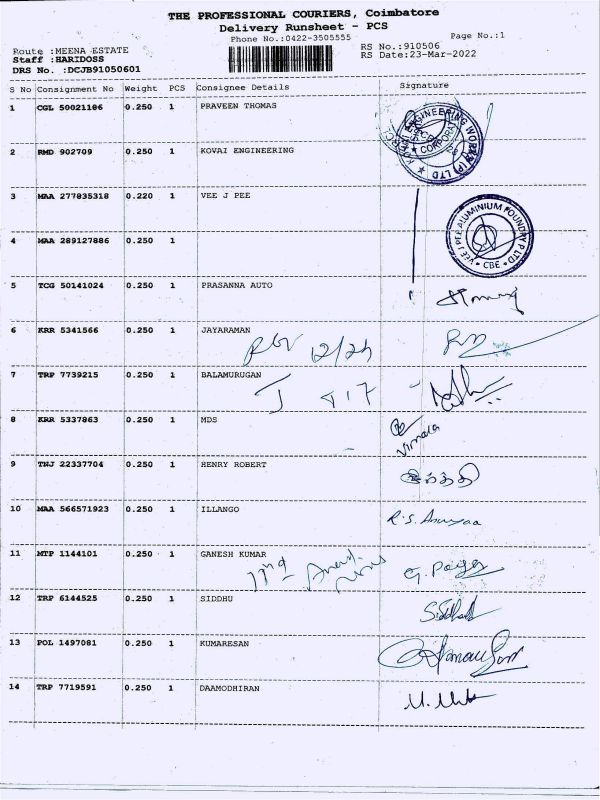 THE PROFESSIONAL COURIERS, Coimbatore
Delivery Runsheet - PCS
Phone No.:0422-3505555
Page No.:1
Route :MEENA ESTATE
RS No.:910506
Staff :HARIDOSS
RS Date:23-Mar-2022
DRS No. :DCJB91050601
S No Consignment No Weight PCS Consignee Details Signature
1 CGL 50021186 0.250 1 PRAVEEN THOMAS
ENGINEERING WORKS (P) LTD
2 RMD 902709 0.250 1 KOVAI ENGINEERING
3 MAA 277835318 0.220 1 VEE J PEE
VEE J PEE ALUMINIUM FOUNDRY P LTD
CBE
4 MAA 289127886 0.250 1
5 TCG 50141024 0.250 1 PRASANNA AUTO
6 KRR 5341566 0.250 1 JAYARAMAN
7 TRP 7739215 0.250 1 BALAMURUGAN
8 KRR 5337863 0.250 1 MDS
Vimala
9 TNJ 22337704 0.250 1 HENRY ROBERT
10 MAA 566571923 0.250 1 ILLANGO
11 MTP 1144101 0.250 1 GANESH KUMAR
12 TRP 6144525 0.250 1 SIDDHU
13 POL 1497081 0.250 1 KUMARESAN
14 TRP 7719591 0.250 1 DAAMODHIRAN